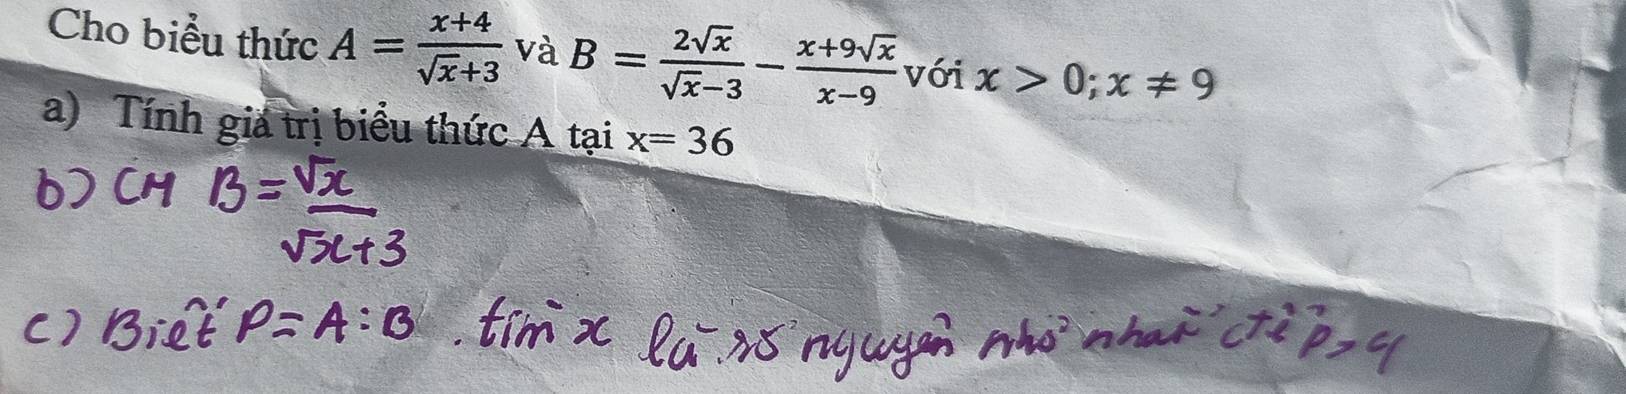 Cho biểu thức A = \frac{x+4}{\sqrt{x}+3} và B = \frac{2\sqrt{x}}{\sqrt{x}-3} - \frac{x+9\sqrt{x}}{x-9} với x > 0; x ≠ 9
a) Tính giá trị biểu thức A tại x= 36
b) CM B = \frac{\sqrt{x}}{\sqrt{x}+3}
c) Biết P = A : B . tìm x là số nguyên nhỏ nhất để P > 4